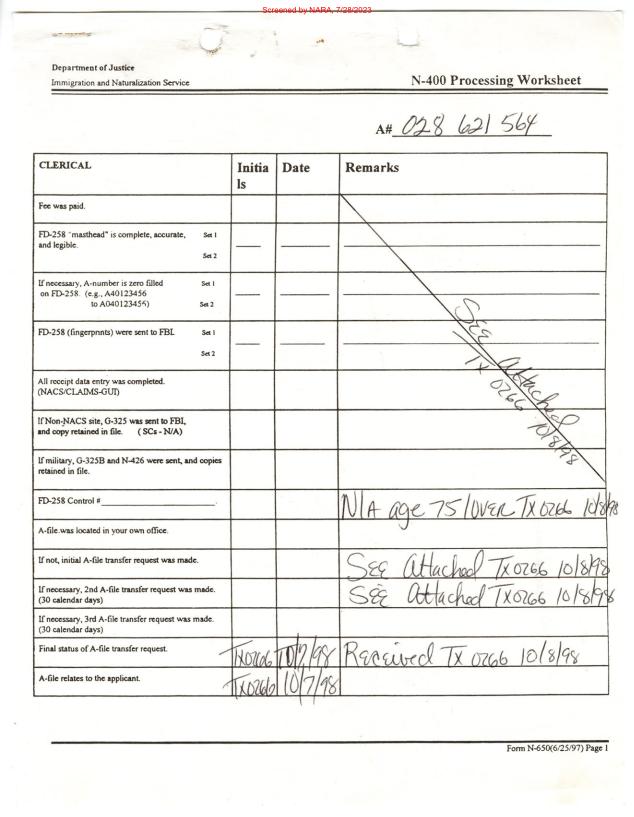 Screened by NARA, 7/28/2023
Department of Justice
Immigration and Naturalization Service
N-400 Processing Worksheet
A# 028 621 564
CLERICAL Initia Date Remarks
ls
Fee was paid.
FD-258 "masthead" is complete, accurate, Set 1
and legible.
Set 2
If necessary, A-number is zero filled Set 1
on FD-258. (e.g., A40123456
to A040123456) Set 2
FD-258 (fingerprints) were sent to FBI. Set 1
Set 2
See Attached
TX 0266 10/8/98
All receipt data entry was completed.
(NACS/CLAIMS-GUI)
If Non-NACS site, G-325 was sent to FBI,
and copy retained in file. (SCs - N/A)
If military, G-325B and N-426 were sent, and copies
retained in file.
FD-258 Control # N/A age 75/over TX0266 10/8/98
A-file was located in your own office.
If not, initial A-file transfer request was made. See Attached TX0266 10/8/98
If necessary, 2nd A-file transfer request was made. See Attached TX0266 10/8/98
(30 calendar days)
If necessary, 3rd A-file transfer request was made.
(30 calendar days)
Final status of A-file transfer request. TX0266 10/7/98 Received TX 0266 10/8/98
A-file relates to the applicant. TX0266 10/7/98
Form N-650(6/25/97) Page 1